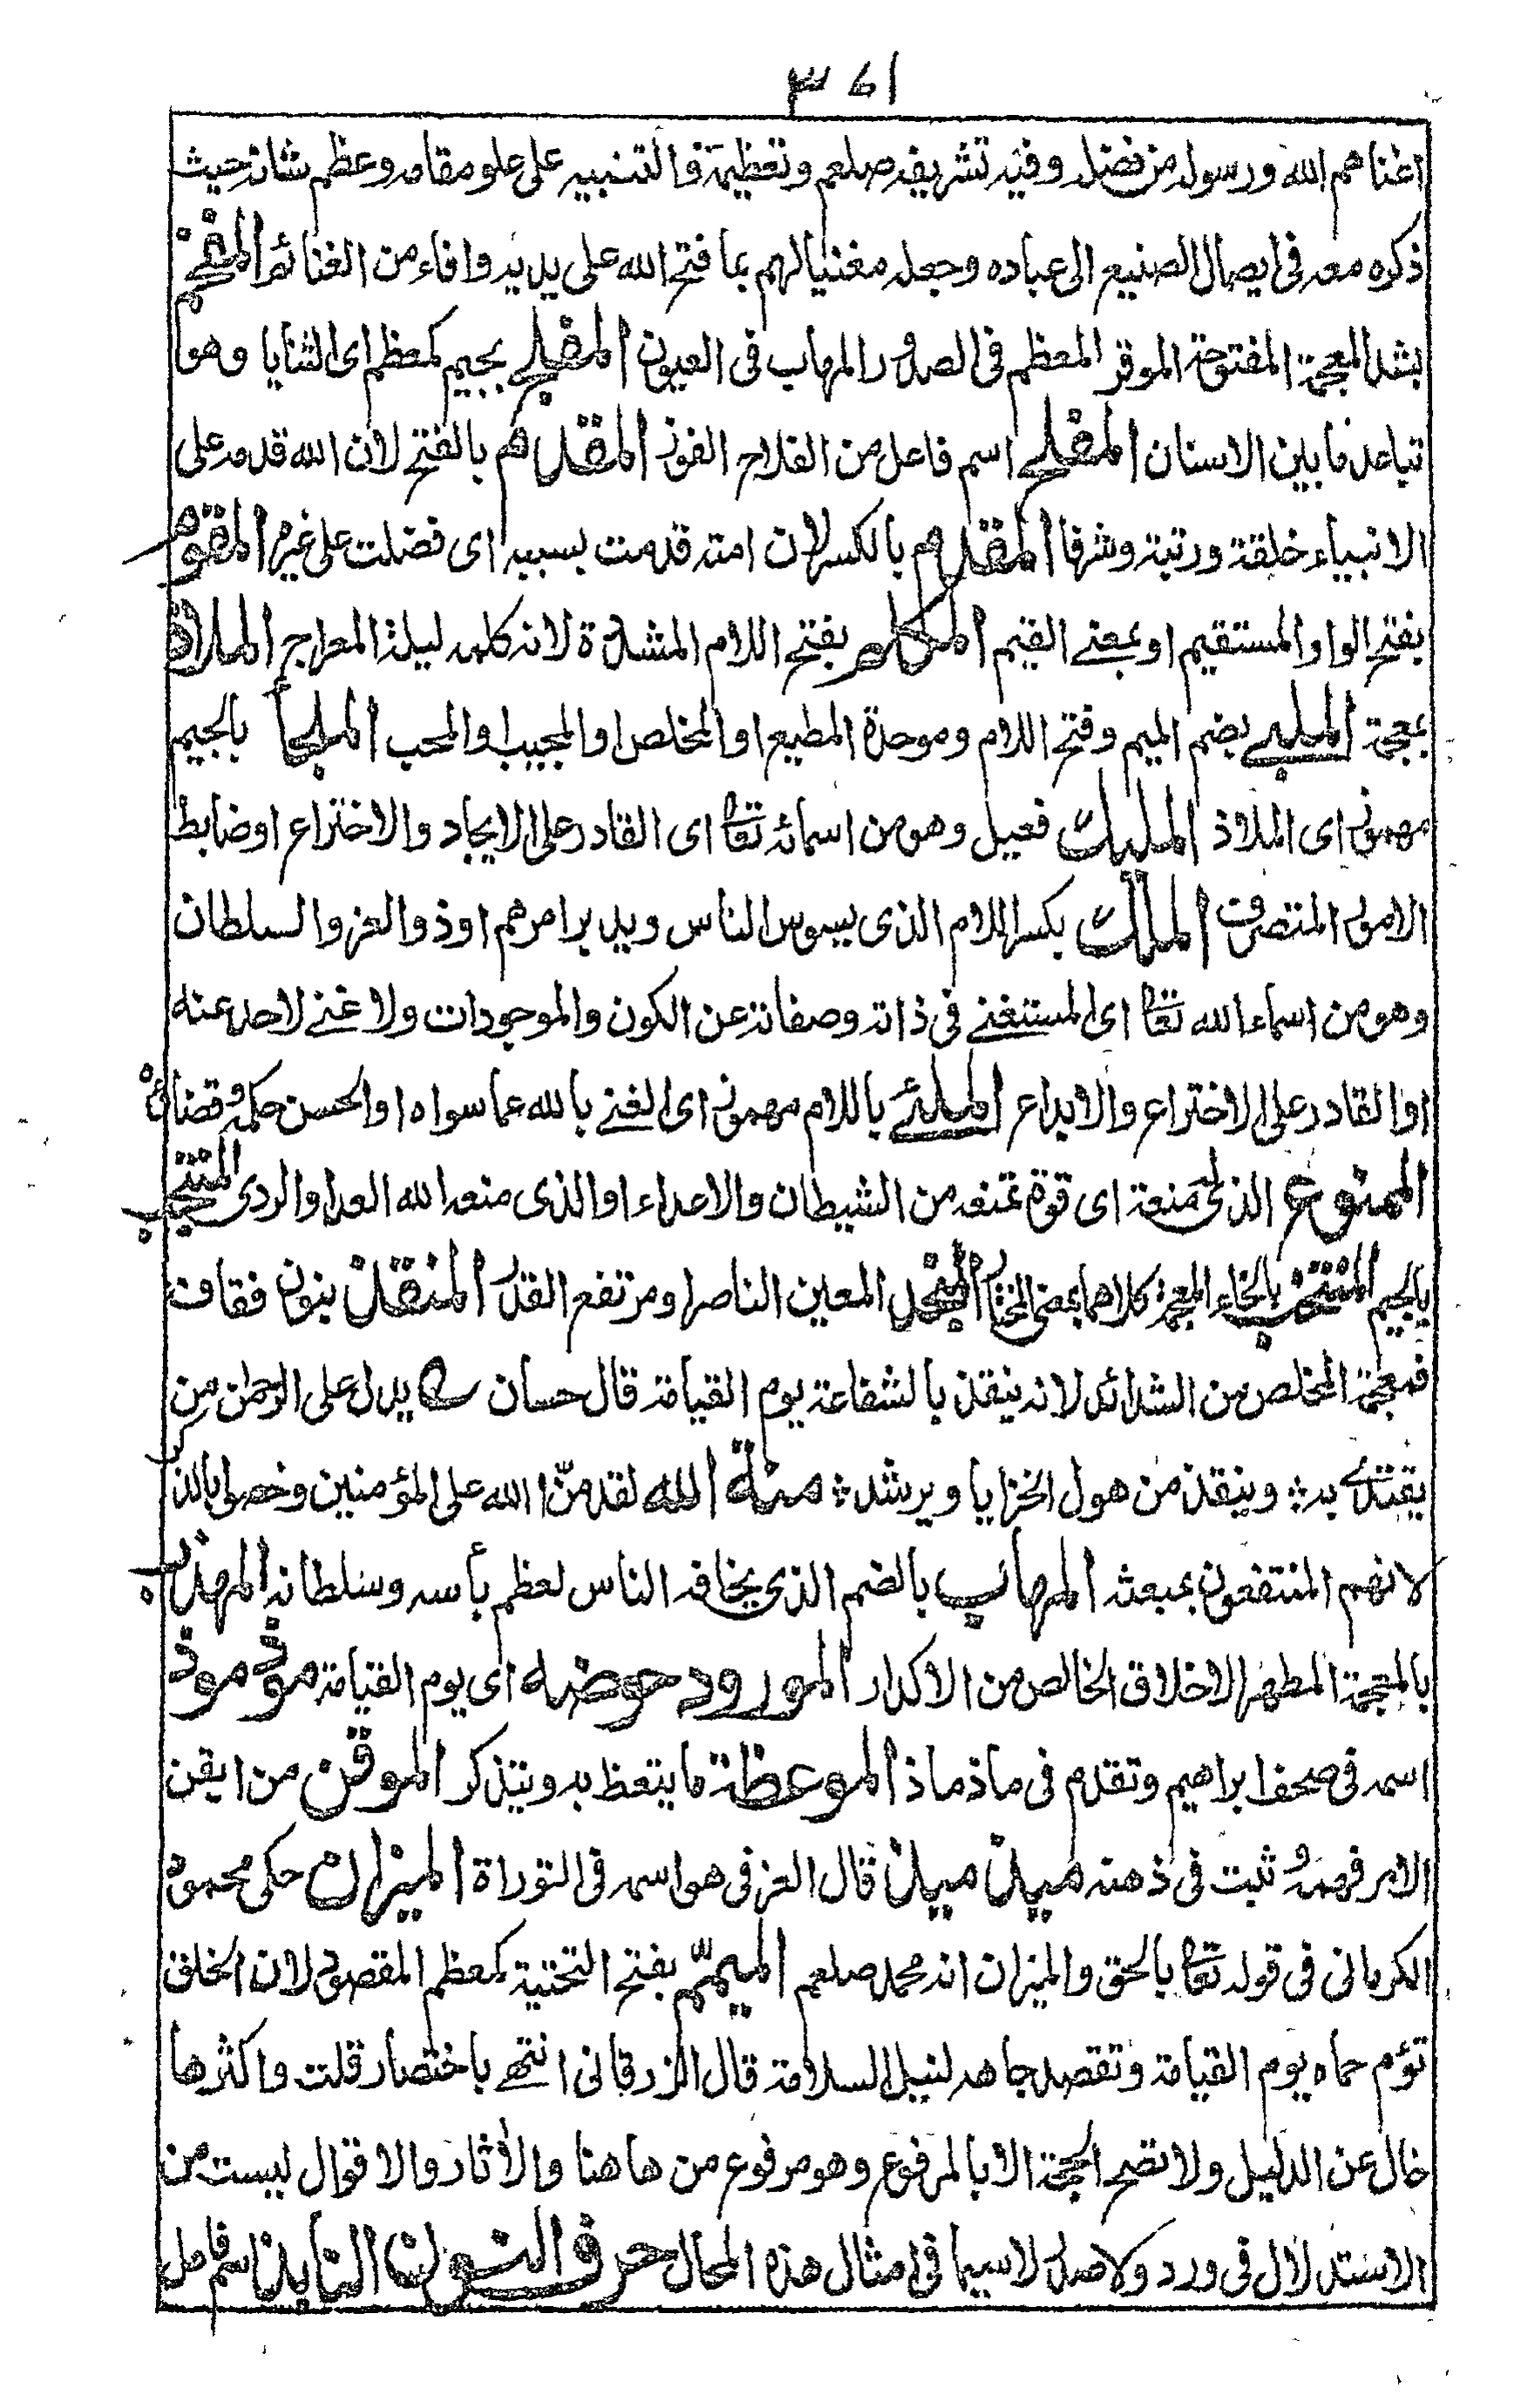 ٣٧١
اغناهم الله ورسوله من فضله وفيه تشريفه صلعم وتعظيمه والتنبيه على علو مقامه وعظم شانه حيث
ذكره معه فى ايصال الصنيع الى عباده وجعله مغنيا لهم بما فتح الله على يديه وافاء من الغنائم المفخم
بشد المعجمة المفتوحة الموقر المعظم فى الصدور المهاب فى العيون المفلج بجيم كمعظم اى الثنايا وهو
تباعد ما بين الاسنان المفلح اسم فاعل من الفلاح الفوز المقدم بالفتح لان الله قدمه على
الانبياء خلقة ورتبة وشرفا المقدم بالكسر لان امته قدمت بسببه اى فضلت على غيرهم المقوم
بفتح الواو المستقيم او بمعنے القيم المكلم بفتح اللام المشددة لانه كلمه ليلة المعراج الملاذ
بمعجمة الملبے بضم الميم وفتح اللام وموحدة المطيع او المخلص او المجيب او المحب الملجأ بالجيم
مهموز اى الملاذ المليك فعيل وهو من اسمائه تعا اى القادر على الايجاد والاختراع او ضابط
الامور المتصرف الملك بكسر اللام الذى يسوس الناس ويدبر امرهم او ذو العز والسلطان
وهو من اسماء الله تعا اى المستغنے فى ذاته وصفاته عن الكون والموجودات ولا غنے لاحد عنه
او القادر على الاختراع والابداع الملئے باللام مهموز اى الغنے بالله عما سواه او الحسن حكمه وقضائه
الممنوع الذى له منعة اى قوة تمنعه من الشيطان والاعداء او الذى منعه الله العدا والردى المنتجب
بالجيم المنتخب بالخاء المعجمة كلاهما بمعنى المختار المنجد المعين الناصر او مرتفع القدر المنقذ بنون فقاف
فمعجمة المخلص من الشدائد لانه ينقذ بالشفاعة يوم القيامة قال حسان ے يدل على الرحمن من
يقتدے به ؞ وينقذ من هول الخزايا ويرشد ؞ منة الله لقد منّ الله على المؤمنين وخصوا بالذكر
لانهم المنتفعون بمبعثه المهاب بالضم الذى يخافه الناس لعظم بأسه وسلطانه المهذب
بالمعجمة المطهر الاخلاق الخالص من الاكدار المورود حوضه اى يوم القيامة موذ موذ
اسمه فى صحف ابراهيم وتقدم فى ماذ ماذ الموعظة ما يتعظ به ويتذكر الموقن من ايقن
الامر فهمه وثبت فى ذهنه ميذ ميذ قال العزفى هو اسمه فى التوراة الميزان حكى محمود
الكرمانى فى قوله تعا بالحق والميزان انه محمد صلعم الميمّم بفتح التحتية كمعظم المقصود لان الخلق
تؤم حماه يوم القيامة وتقصد جاهه لنيل السلامة قال الزرقانى انتهے باختصار قلت واكثرها
خال عن الدليل ولا تصح الحجة الا بالمرفوع وهو مرفوع من ها هنا والأثار والاقوال ليست من
الاستدلال فى ورد ولا صدر لاسيما فى امثال هذه المحال حرف النون النابذ اسم فاعل